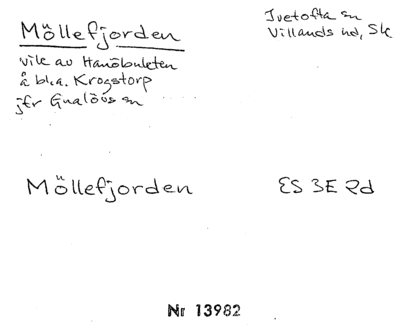 Möllefjorden
Ivetofta sn
Villands hd, Sk
vik av Hanöbukten
å bl.a. Krogstorp
jfr Gualövs sn
Möllefjorden
ES 3E 2d
Nr 13982